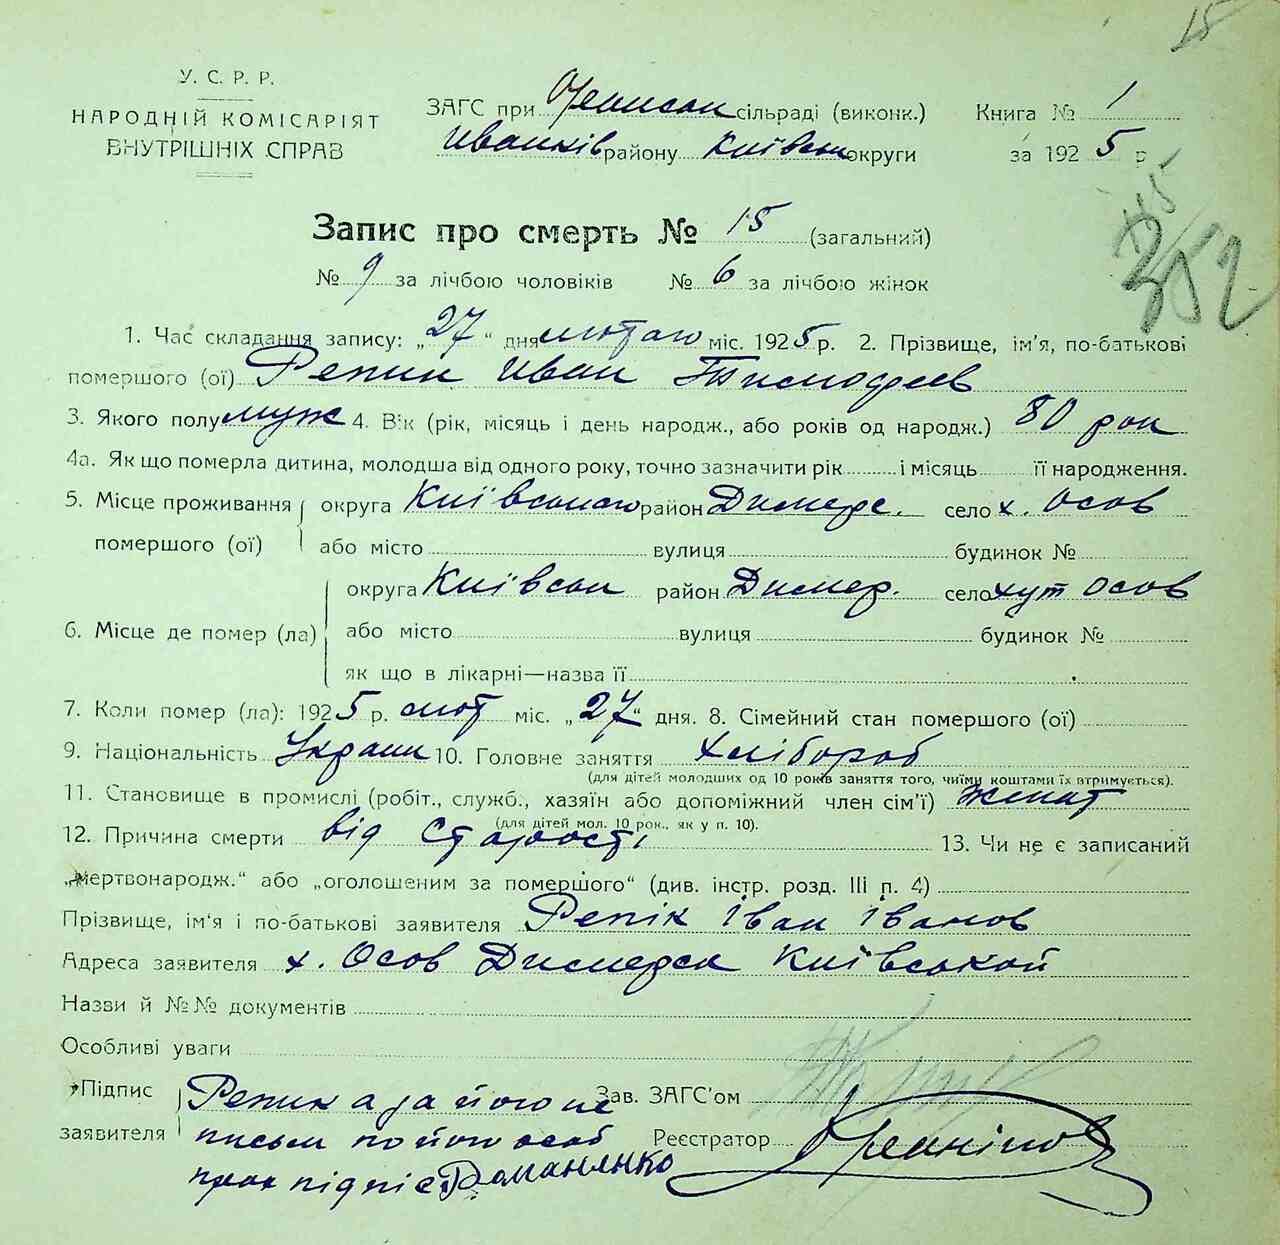 15
У. С. Р. Р.
НАРОДНІЙ КОМІСАРІЯТ
ВНУТРІШНІХ СПРАВ
ЗАГС при сільраді (виконк.)
Иванків району Київськ округи
Книга № 1
за 1925 р
Запис про смерть № 15 (загальний)
№ 9 за лічбою чоловіків № 6 за лічбою жінок
1. Час складання запису: „27“ дня лютаго міс. 1925 р. 2. Прізвище, ім'я, по-батькові
помершого (ої) Репик Иван Тимофеев
3. Якого полу муж 4. Вік (рік, місяць і день народж., або років од народж.) 80 рок
4а. Як що померла дитина, молодша від одного року, точно зазначити рік і місяць її народження.
5. Місце проживання округа Київського район Димерс. село х. Осов
помершого (ої) або місто вулиця будинок №
округа Київськ район Димер. село хут Осов
6. Місце де помер (ла) або місто вулиця будинок №
як що в лікарні—назва її
7. Коли помер (ла): 1925 р. лют міс. „27“ дня. 8. Сімейний стан помершого (ої)
9. Національність Украин 10. Головне заняття хлібороб
(для дітей молодших од 10 років заняття того, чиїми коштами їх втримується).
11. Становище в промислі (робіт., служб., хазяїн або допоміжний член сім'ї) женат
(для дітей мол. 10 рок., як у п. 10).
12. Причина смерти від старості 13. Чи не є записаний
„мертвонародж.“ або „оголошеним за помершого“ (див. інстр. розд. III п. 4)
Прізвище, ім'я і по-батькові заявителя Репік Іван Іванов
Адреса заявителя х. Осов Димерск Київськой
Назви й №№ документів
Особливі уваги
Підпис Репик а за його не Зав. ЗАГС'ом
заявителя письм по його особ Реєстратор
прох підпіс Романенко